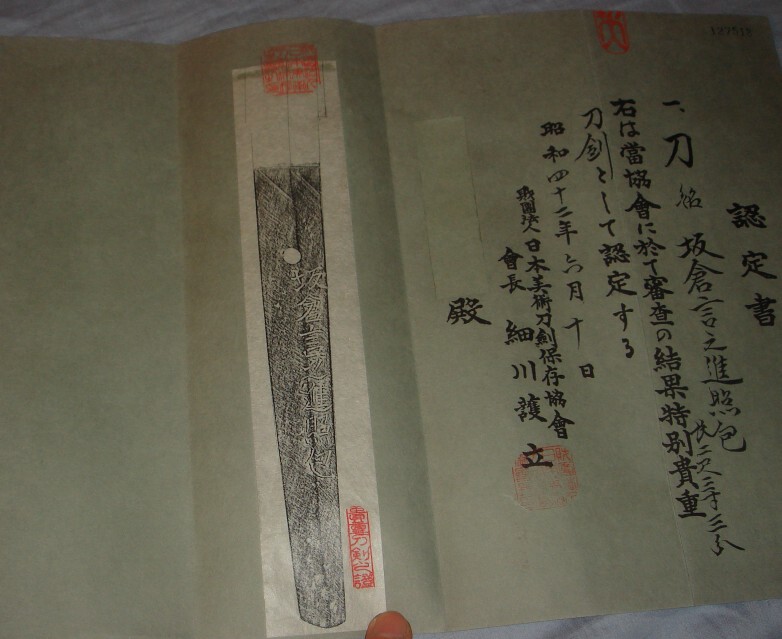 認定書
一、刀 銘 坂倉言之進照包 長二尺三寸三分
右は當協會に於て審査の結果特別貴重
刀剣として認定する
昭和四十二年六月十日
財團法人日本美術刀剣保存協會
會長 細川護立
殿
坂倉言之進照包